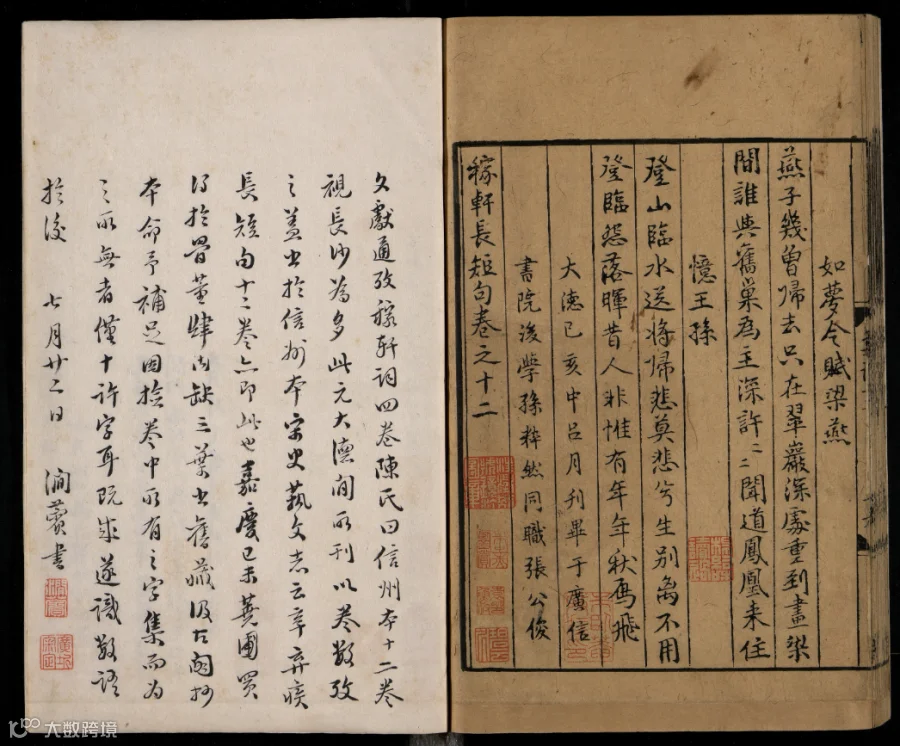 如夢令賦梁燕
燕子幾曾歸去只在翠巖深處重到畫梁
間誰與舊巢為主深許〻〻聞道鳳凰来住
憶王孫
登山臨水送將歸悲莫悲兮生別离不用
登臨怨落暉昔人非惟有年年秋鴈飛
大德己亥中呂月刊畢于廣信
書院後學孫粹然同職張公俊
稼軒長短句卷之十二
文獻通攷稼軒詞四卷陳氏曰信州本十二卷
視長沙為多此元大德間所刊以卷數攷
之盖出於信州本宋史藝文志云辛弃疾
長短句十二卷亦即此也嘉慶己未蕘圃買
得於骨董肆内缺三葉出舊藏汲古閣抄
本命予補足因撿卷中所有之字集而為
之所無者僅十許字耳既成遂識數語
於後 七月廿二日 澗薲書
大数跨境